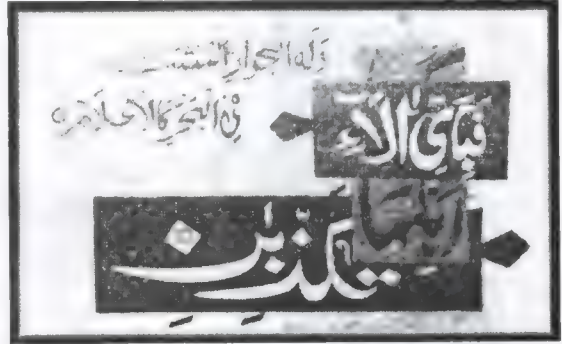 وله الجوار المنشئت
فى البحر كالاعلام
فبأى الاء
ربكما
تكذبن